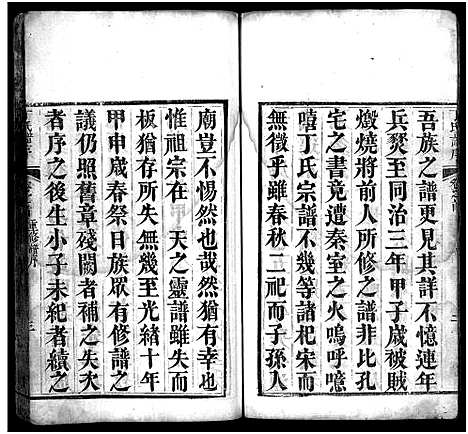 吾族之譜更見其詳不憶連年
兵燹至同治三年甲子歲被賊
燬燒將前人所修之譜非比孔
宅之書竟遭秦室之火嗚呼噫
嘻丁氏宗譜不幾等諸杞宋而
無徵乎雖春秋二祀而子孫入
廟豈不愧也哉然猶有幸也
惟祖宗在 天之靈譜雖失而
板猶存所失無幾至光緒十年
甲申歲春祭日族眾有修譜之
議仍照舊章殘闕者補之失次
者序之後生小子未紀者續之
三